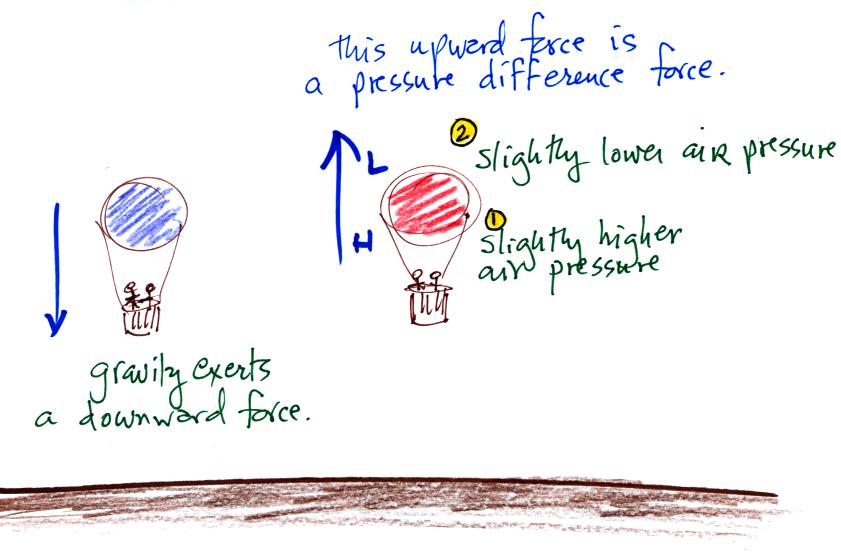 this upward force is
a pressure difference force.
2
slightly lower air pressure
L
1
slightly higher
air pressure
H
gravity exerts
a downward force.